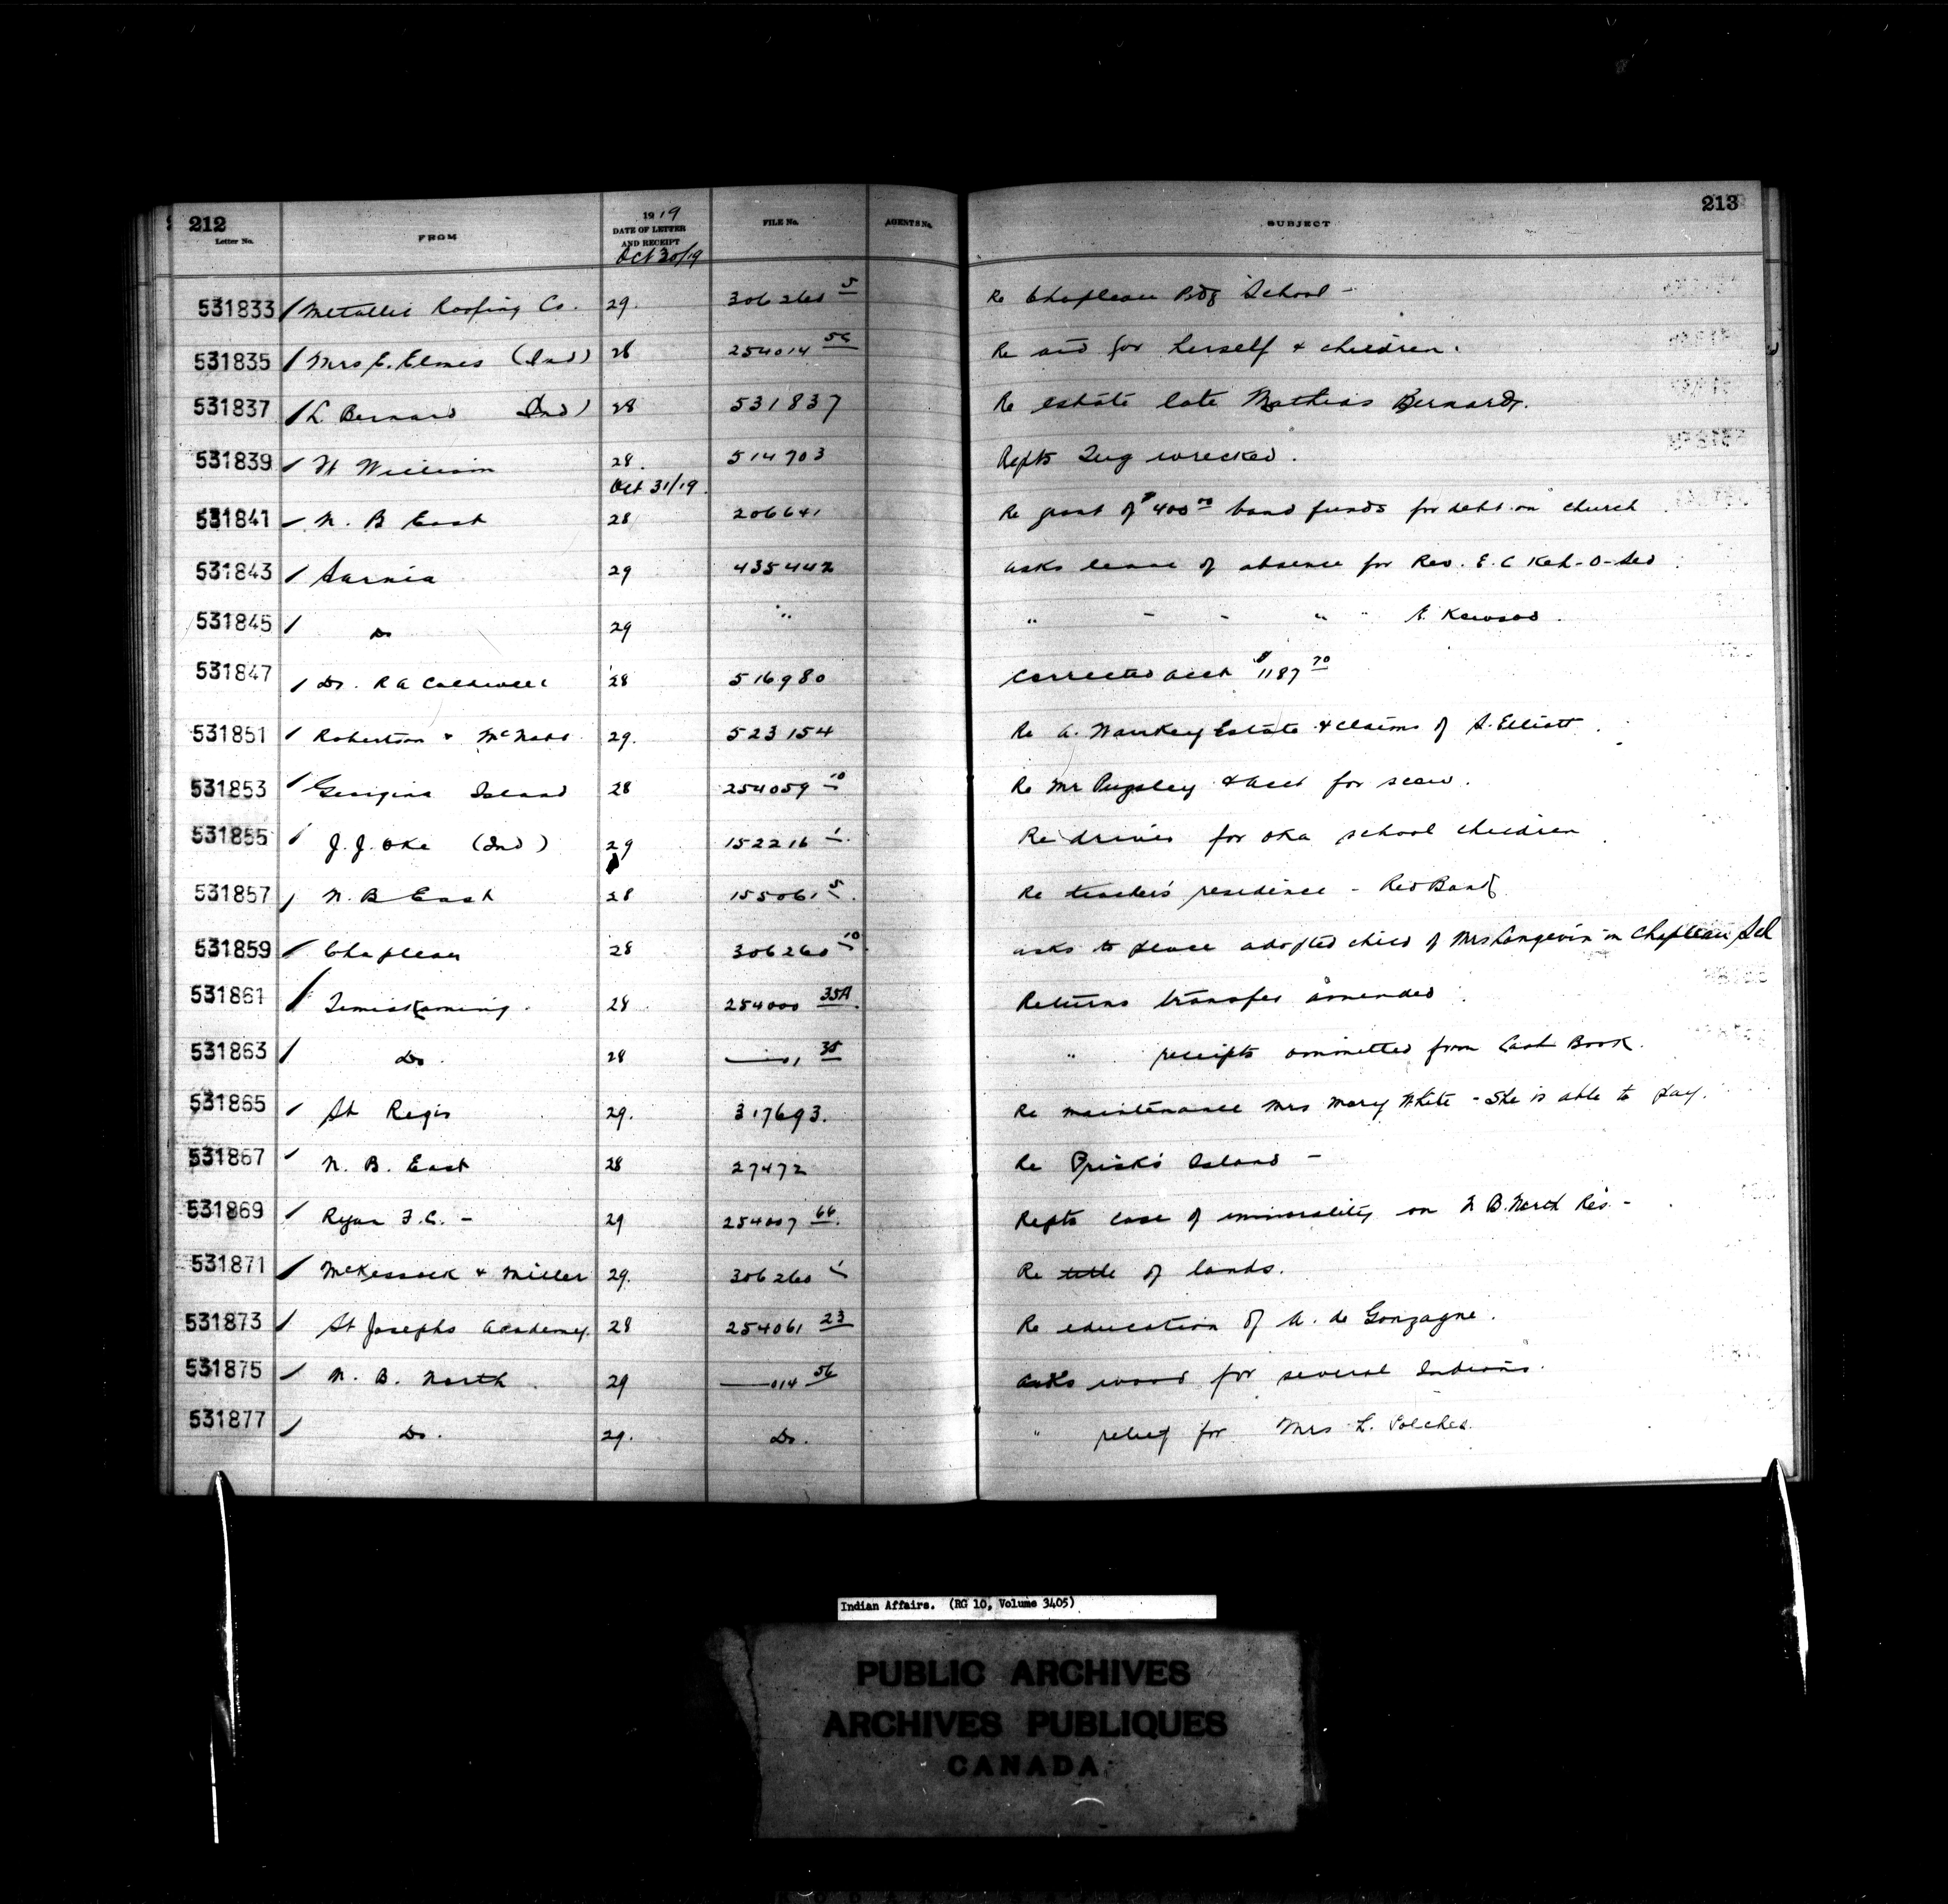 212
213
Letter No. FROM 1919 DATE OF LETTER AND RECEIPT FILE No. AGENTS No. SUBJECT
Oct 30/19
531833 Metallic Roofing Co. 29. 306260 5 Re Chapleau Bdg School -
531835 Mrs E. Elmes (Ind) 28 254014 Re aid for herself & children.
531837 L Bernard Ind) 28 531837 Re estate late Mathias Bernard.
531839 Ft William 28. 514703 Repts Tug wrecked.
Oct 31/19.
531841 N. B East 28 206641 Re grant of $400 00 band funds for debt on church
531843 Sarnia 29 435442 asks leave of absence for Rev. E. C Kah-O-Sed
531845 Do 29 " " - - " " Kewsod.
531847 Dr. R A Caldwell 28 516980 Corrected acct $1187 70
531851 Robertson & McNabb 29. 523154 Re A. Waukey Estate & claims of S. Elliott.
531853 Georgina Island 28 254059 10 Re Mr Pugsley & acct for scow.
531855 J. J. Oke (Ind) 29 152216 1. Re drives for Oka school children
531857 N. B East 28 155061 5. Re teachers' residence - Red Bank
531859 Chapleau 28 306260 10. asks to place adopted child of Mrs Langevin in Chapleau Scl
531861 Temiskaming. 28 254000 35A. Returns transfer amended.
531863 Do. 28 ——01 35 " receipts ommitted from Cash Book.
531865 St Regis 29. 317693. Re maintenance Mrs Mary White - She is able to pay.
531867 N. B. East 28 27472 Re Island -
531869 Ryan F. C. - 29 254007 66. Repts case of immorality on N B. North Res -
531871 McKessock & Miller 29. 306260 1 Re title of lands.
531873 St Josephs Academy. 28 254061 23 Re education of A. de Gonzagne.
531875 N. B. North 29 ——014 56 asks wood for several Indians.
531877 Do. 29. Do. " relief for Mrs L. Polches.
Indian Affairs. (RG 10, Volume 3405)
PUBLIC ARCHIVES
ARCHIVES PUBLIQUES
CANADA